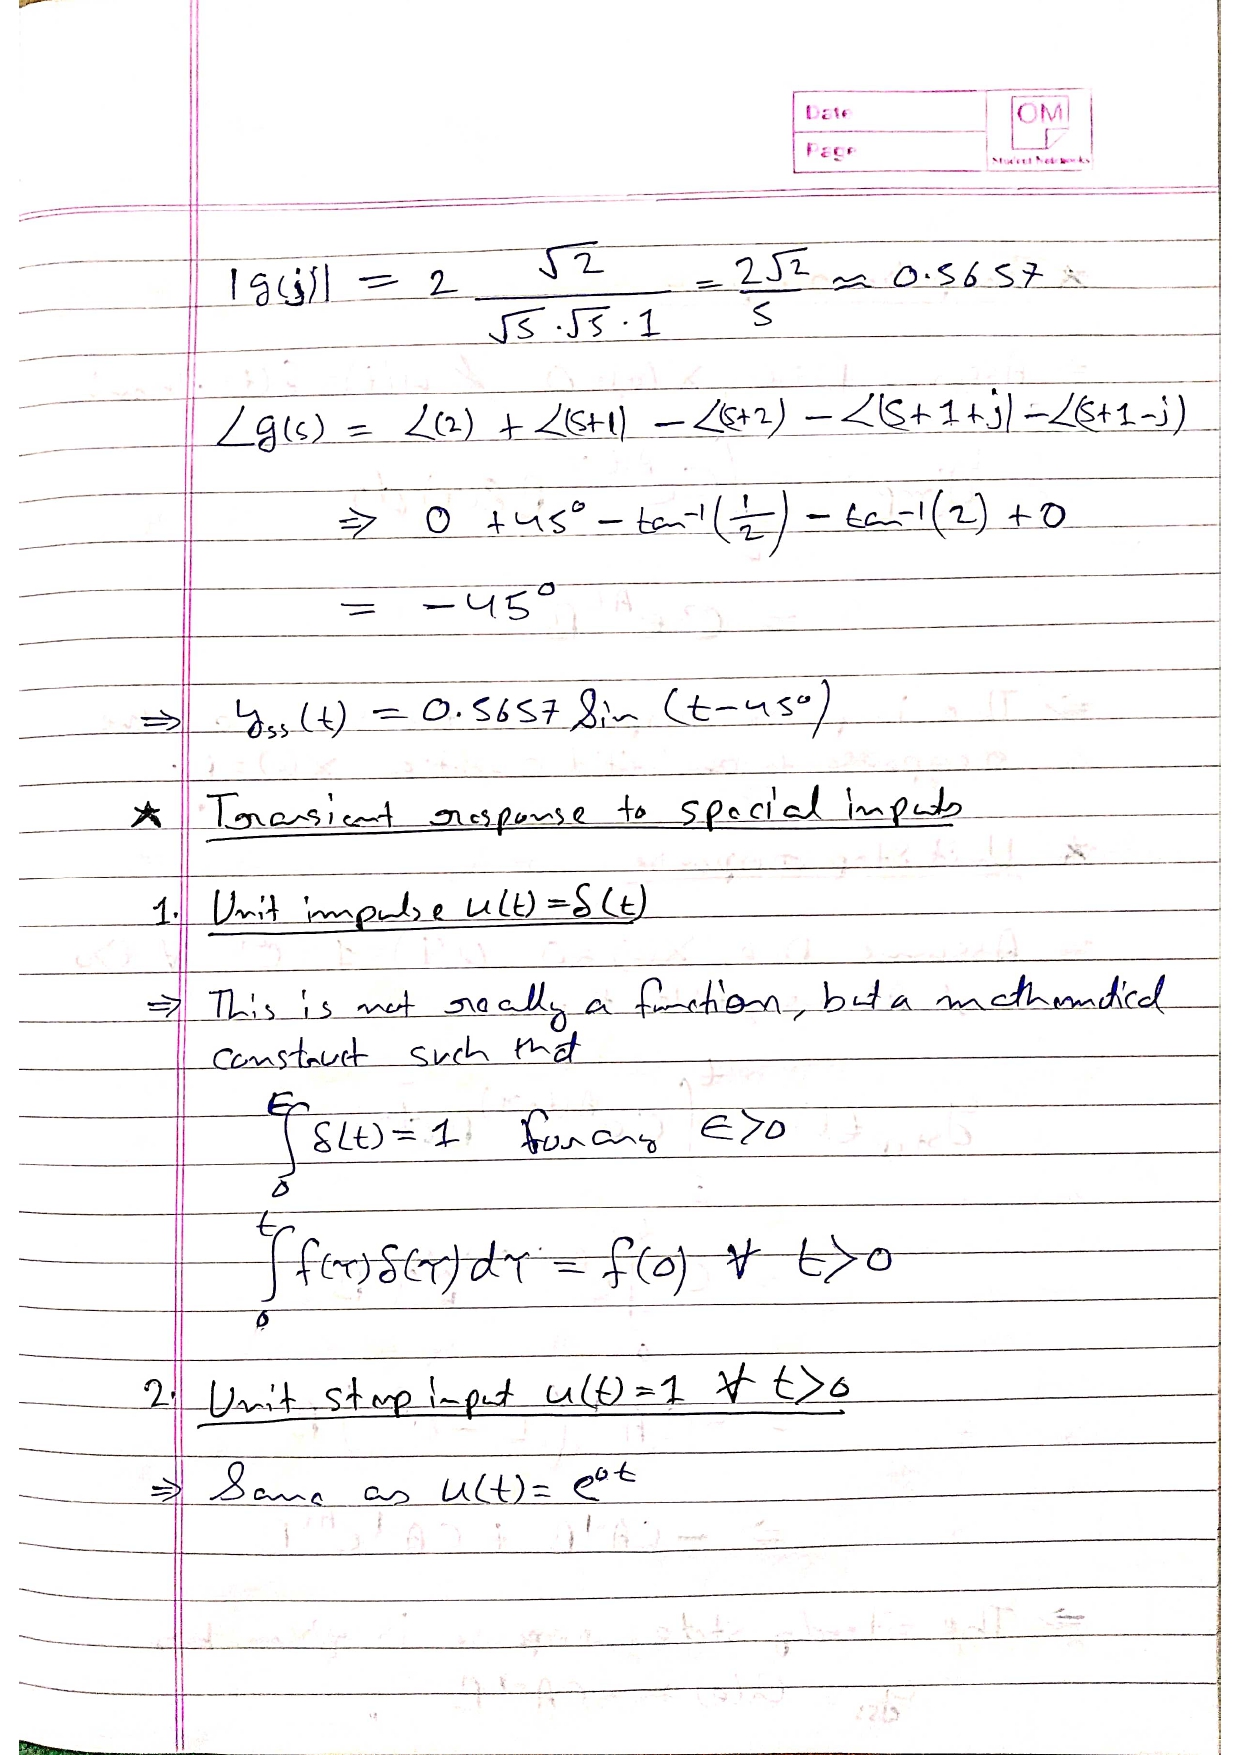 Date
Page
OM
Student Notebooks
|g(j)| = 2 √2 / (√5 · √5 · 1) = 2√2 / 5 ≈ 0.5657
∠g(s) = ∠(2) + ∠(s+1) – ∠(s+2) – ∠(s+1+j) – ∠(s+1-j)
⇒ 0 + 45° – tan⁻¹(1/2) – tan⁻¹(2) + 0
= -45°
⇒ yss(t) = 0.5657 Sin (t-45°)
★ Transient response to special inputs
1. Unit impulse u(t) = δ(t)
⇒ This is not really a function, but a mathematical
construct such that
∫₀^ϵ δ(t) = 1 for any ϵ>0
∫₀^t f(τ) δ(τ) dτ = f(0) ∀ t>0
2. Unit step input u(t) = 1 ∀ t>0
⇒ Same as u(t) = e^{0t}